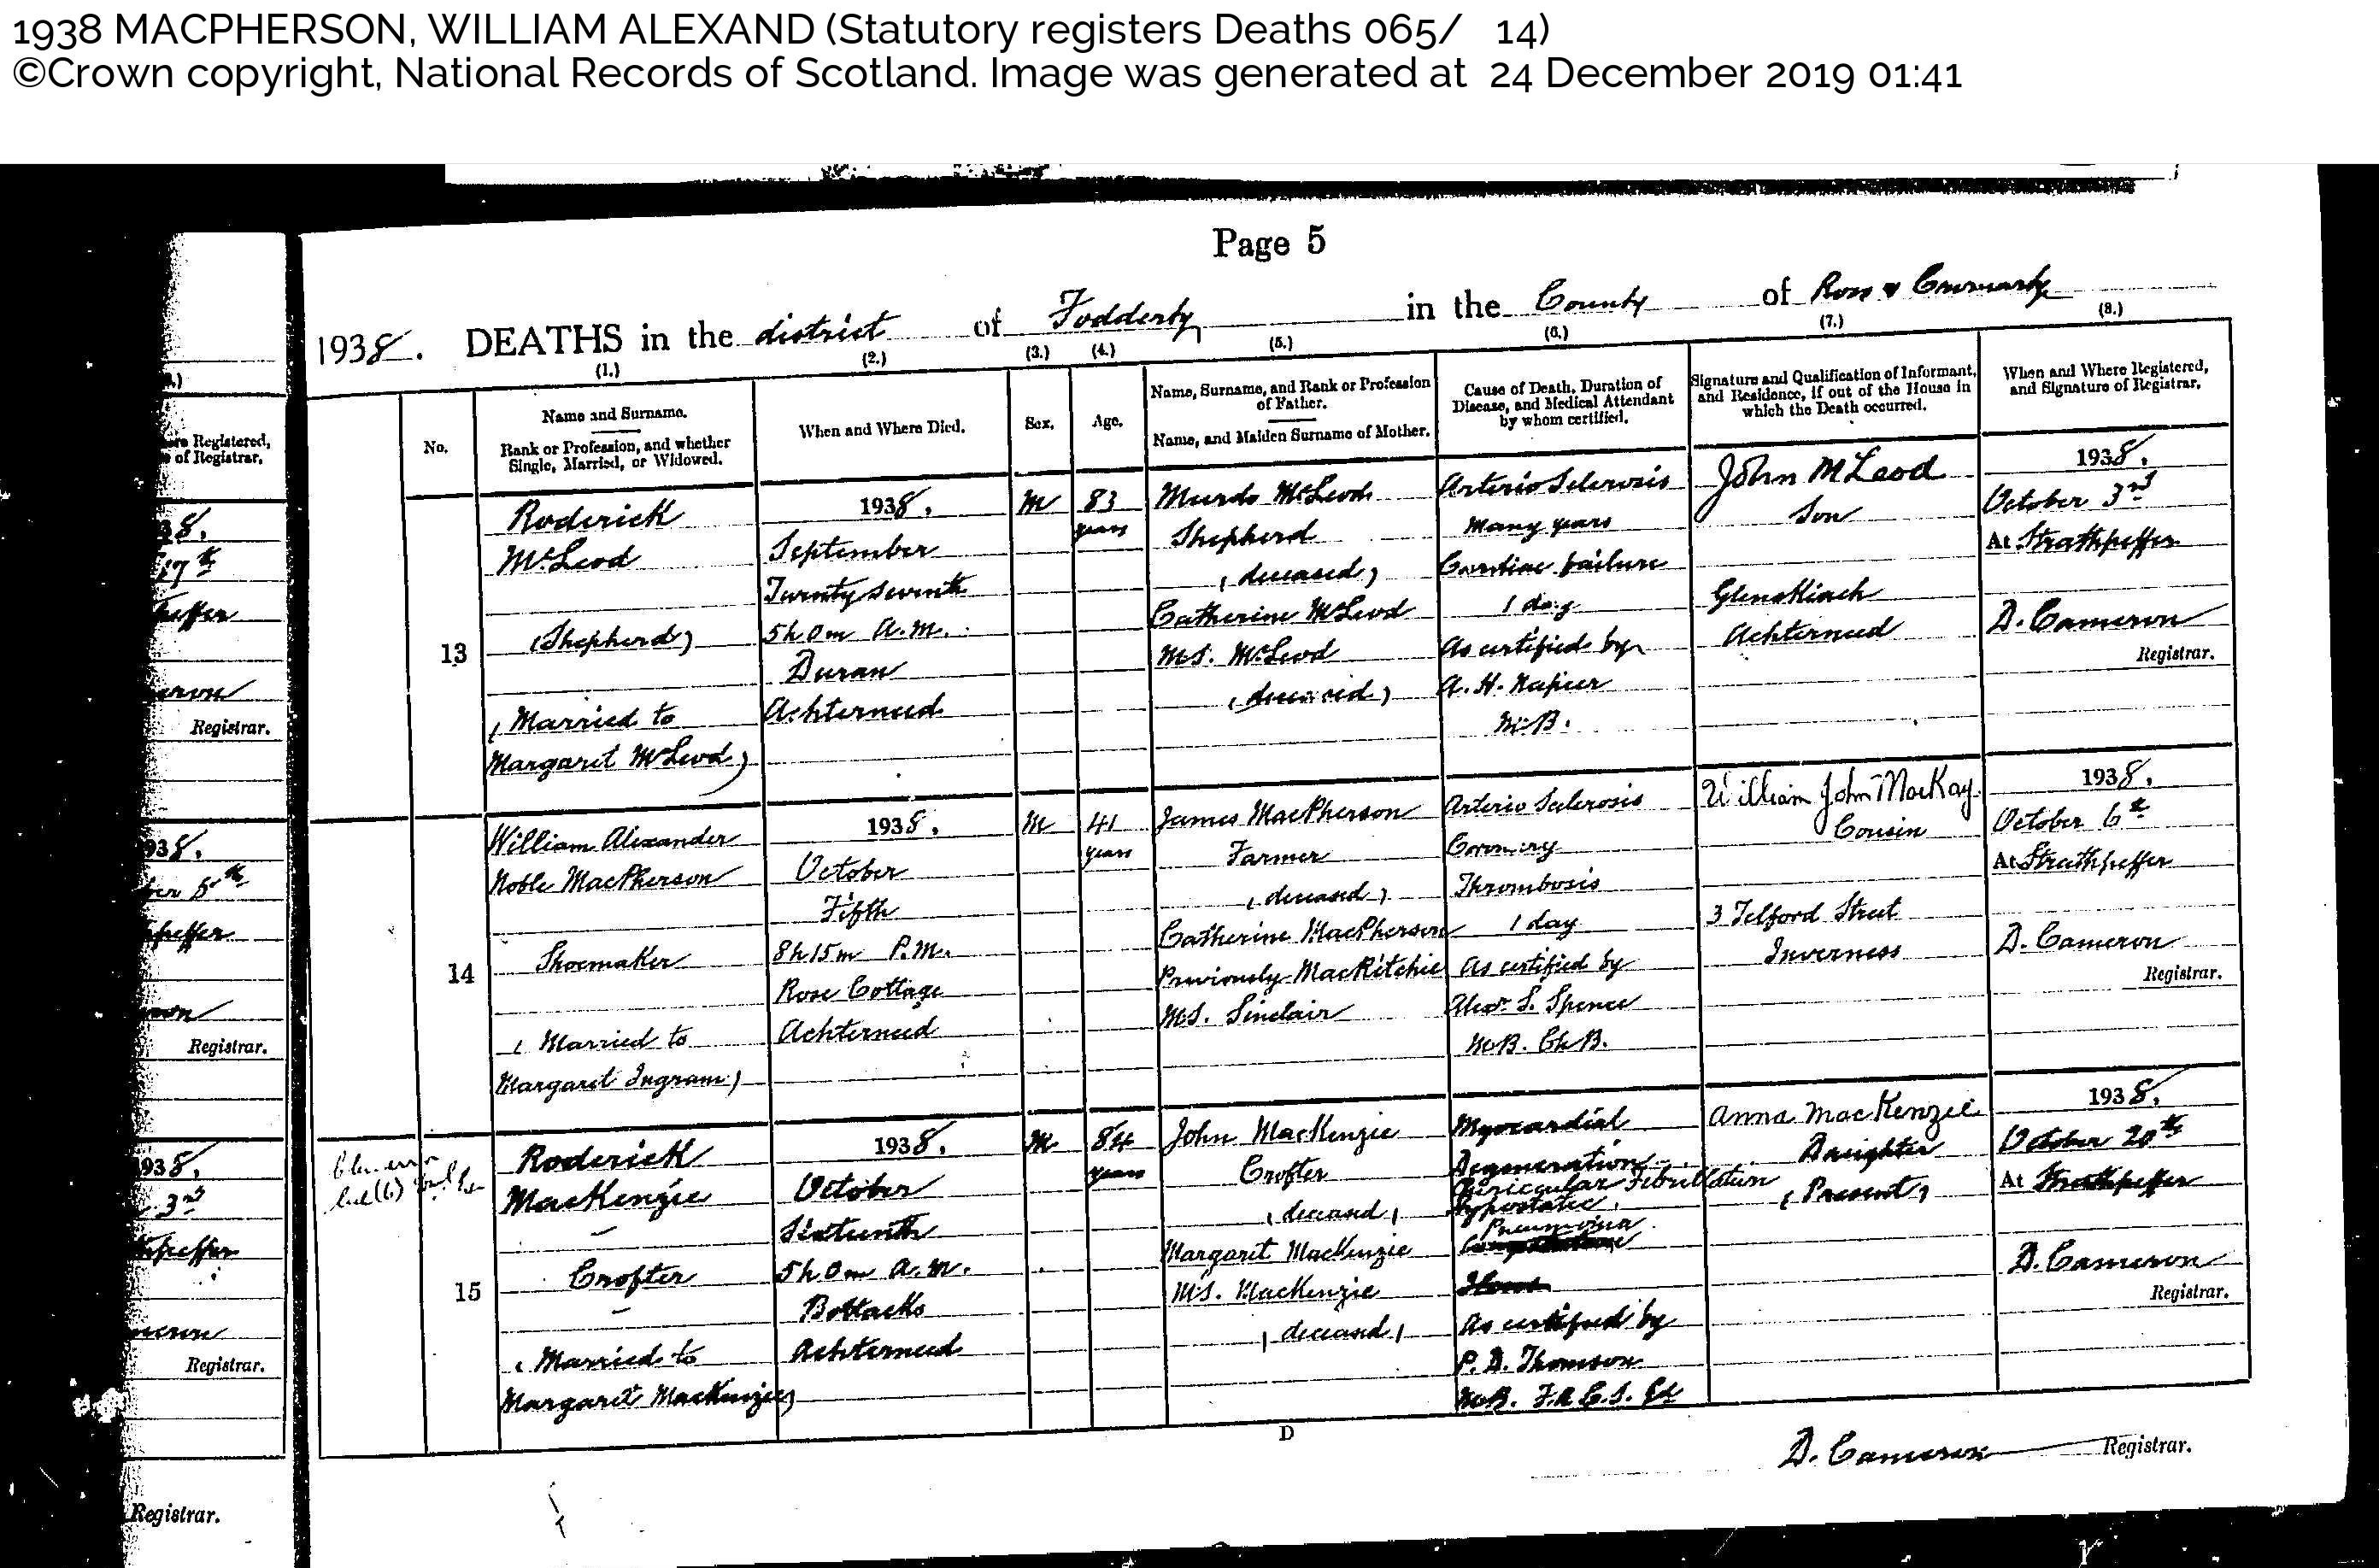 1938 MACPHERSON, WILLIAM ALEXAND (Statutory registers Deaths 065/ 14)
©Crown copyright, National Records of Scotland. Image was generated at 24 December 2019 01:41
Page 5
1938. DEATHS in the district of Fodderty in the County of Ross & Cromarty
(1.) (2.) (3.) (4.) (5.) (6.) (7.) (8.)
No.
Name and Surname.
Rank or Profession, and whether
Single, Married, or Widowed.
When and Where Died.
Sex.
Age.
Name, Surname, and Rank or Profession
of Father.
Name, and Maiden Surname of Mother.
Cause of Death, Duration of
Disease, and Medical Attendant
by whom certified.
Signature and Qualification of Informant,
and Residence, if out of the House in
which the Death occurred.
When and Where Registered,
and Signature of Registrar.
13
Roderick
McLeod
(Shepherd)
(Married to
Margaret McLeod)
1938.
September
Twenty seventh
5h 0m A.M.
Duran
Achterneed
M
83
years
Murdo McLeod
Shepherd
(deceased)
Catherine McLeod
M.S. McLeod
(deceased)
Arterio Sclerosis
Many years
Cardiac failure
1 day
As certified by
A. H. Napier
M.B.
John McLeod
Son
Glenskiach
Achterneed
1938.
October 3rd
At Strathpeffer
D. Cameron
Registrar.
14
William Alexander
Noble MacPherson
Shoemaker
(Married to
Margaret Ingram)
1938.
October
Fifth
8h 15m P.M.
Rose Cottage
Achterneed
M
41
years
James MacPherson
Farmer
(deceased)
Catherine MacPherson
Previously MacRitchie
M.S. Sinclair
Arterio Sclerosis
Coronary
Thrombosis
1 day
As certified by
Alexr. S. Spence
M.B. Ch.B.
William John MacKay
Cousin
3 Telford Street
Inverness
1938.
October 6th
At Strathpeffer
D. Cameron
Registrar.
15
Roderick
MacKenzie
Crofter
(Married to
Margaret MacKenzie)
1938.
October
Sixteenth
5h 0m A.M.
Bottacks
Achterneed
M
84
years
John MacKenzie
Crofter
(deceased)
Margaret MacKenzie
M.S. MacKenzie
(deceased)
Myocardial
Degeneration
Auricular Fibrillation
Hypostatic
Pneumonia
As certified by
P. D. Thomson
M.B. F.R.C.S. Ed
Anna MacKenzie
Daughter
(Present)
1938.
October 20th
At Strathpeffer
D. Cameron
Registrar.
D
D. Cameron Registrar.
Registered,
of Registrar.
17th
Registrar.
Registrar.
Registrar.
Registrar.